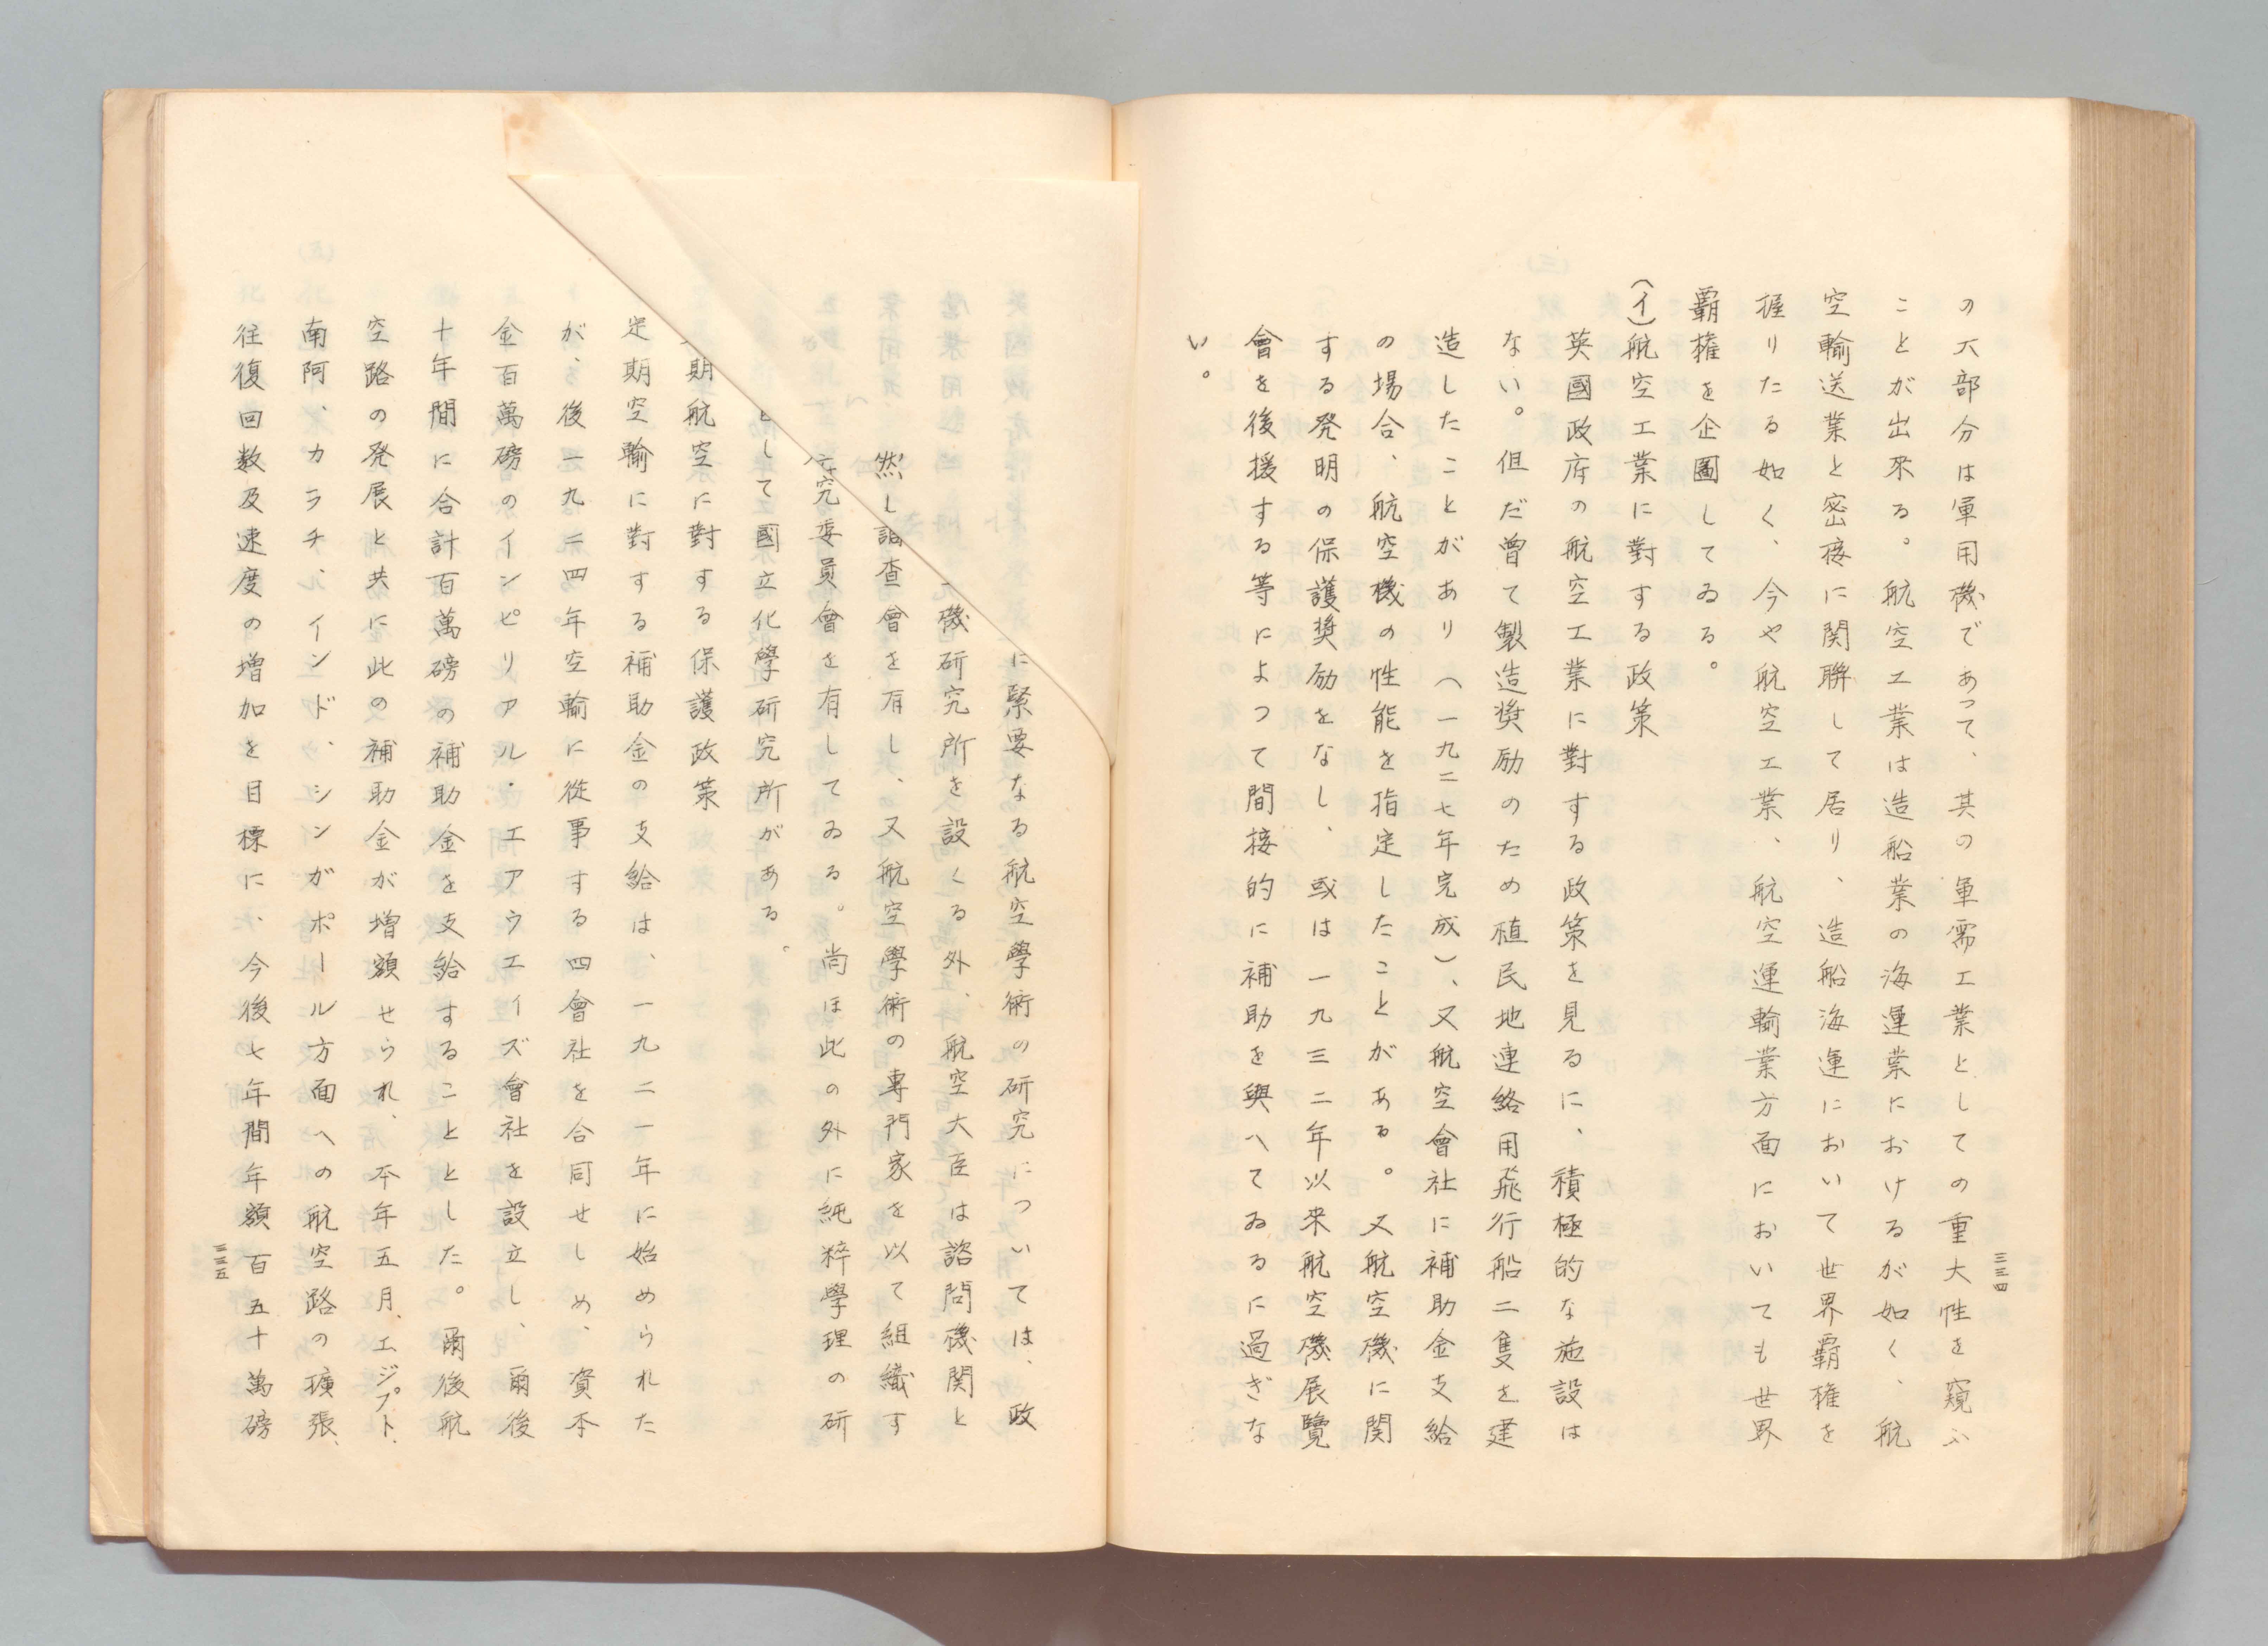 の大部分は軍用機であつて、其の軍需工業としての重大性を窺ふ
ことが出來る。航空工業は造船業の海運業におけるが如く、航
空輸送業と密接に関聯して居り、造船海運において世界覇権を
握りたる如く、今や航空工業、航空運輸業方面においても世界
覇権を企圖してゐる。
(イ)航空工業に對する政策
英國政府の航空工業に對する政策を見るに、積極的な施設は
ない。但だ曽て製造奨励のため植民地連絡用飛行船二隻を建
造したことがあり(一九二七年完成)、又航空會社に補助金支給
の場合、航空機の性能を指定したことがある。又航空機に関
する発明の保護奨励をなし、或は一九三二年以来航空機展覽
會を後援する等によつて間接的に補助を與へてゐるに過ぎな
い。
三三四
に緊要なる航空學術の研究については、政
機研究所を設くる外、航空大臣は諮問機関と
然し調査會を有し、又航空學術の専門家を以て組織す
究委員會を有してゐる。尚ほ此の外に純粹學理の研
として國立化學研究所がある。
期航空に對する保護政策
定期空輸に對する補助金の支給は、一九二一年に始められた
が、後一九二四年空輸に從事する四會社を合同せしめ、資本
金百萬磅のインピリアル・エアウエイズ會社を設立し、爾後
十年間に合計百萬磅の補助金を支給することとした。爾後航
空路の発展と共に此の補助金が増額せられ、本年五月、エジプト、
南阿、カラチ、インド、シンガポール方面への航空路の擴張、
往復回数及速度の増加を目標に、今後七年間年額百五十萬磅
三三五